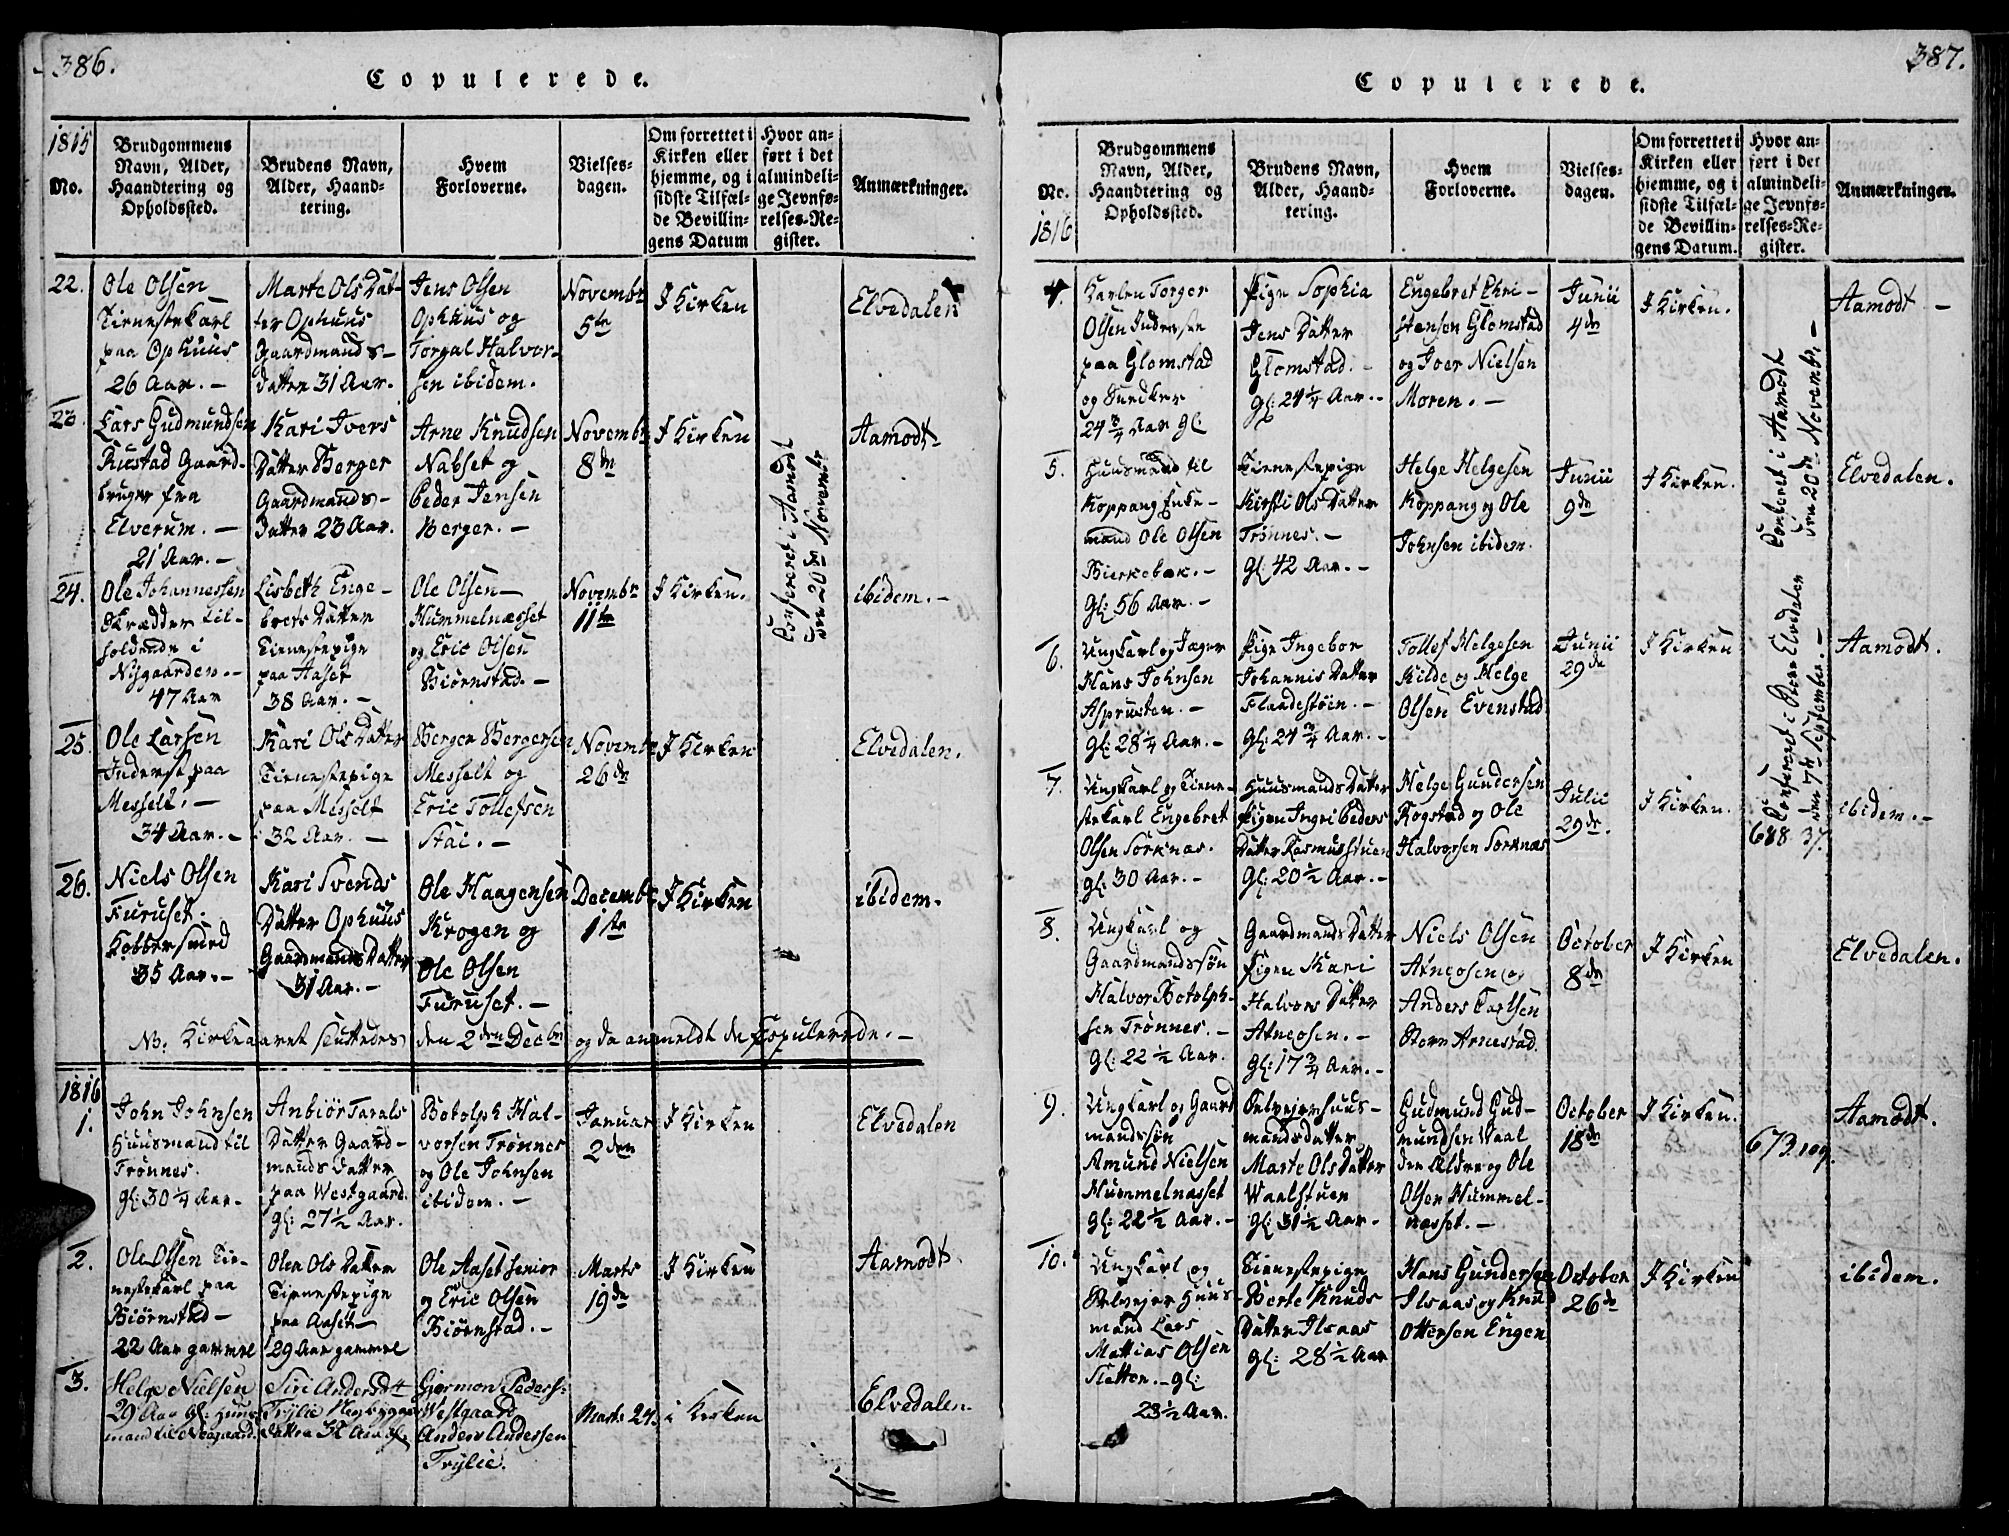 386.
Copulerede.
1815
No.
Brudgommens
Navn, Alder,
Haandtering og
Opholdssted.
Brudens Navn,
Alder, Haand-
tering.
Hvem
Forloverne.
Vielses-
dagen.
Om forrettet i
Kirken eller
hjemme, og i
sidste Tilfæl-
de Bevillin-
gens Datum
Hvor an-
ført i det
almindeli-
ge Jevnfø-
relses-Re-
gister.
Anmærkninger.
22.
Ole Olsen
Tienestekarl
paa Ophuus
26 Aar. –
Marte Ols Dat-
ter Ophuus
Gaardmands-
datter 31 Aar.
Jens Olsen
Ophuus og
Torgal Halvor-
sen ibidem.
Novembr
5te
I Kirken
Elvedalen
23.
Lars Gudmundsen
Rustad Gaard-
bruger fra
Elverum. –
21 Aar. –
Kari Ivers
Datter Berger
Gaardmands-
Datter 23 Aar.
Arne Knudsen
Nabset og
Peder Jensen
Berger. –
Novembr
8de
I Kirken
Aamodt.
24.
Ole Johannessen
Skrædder til-
holdende i
Nygaarden. –
47 Aar
Lisbeth Enge-
brets Datter
Tienestepige
paa Aaset
38 Aar. –
Ole Olsen
Hummelnæsset
og Eric Olsen
Biørnstad. –
Novembr
11te
I Kirken.
ibidem. –
Conferert i Aamodt
den 20de November
25.
Ole Larsen
Inderst paa
Messelt. –
34 Aar. –
Kari Ols Datter
Tienestepige
paa Messelt
32 Aar. –
Berger Bergersen
Messelt og
Eric Tollefsen
Stai. –
Novembr
26de
I Kirken
Elvedalen.
26.
Niels Olsen
Furuset.
Kobbersmed
35 Aar. –
Kari Svends
Datter Ophuus
Gaardmands Datter
31 Aar. –
Ole Haagensen
Krogen og
Ole Olsen
Furuset. –
Decembr
1ste
I Kirken
ibidem.
NB. Kirkeaaret sluttedes den 2den Decbr og da anmeldt de Copulerede. –
1816
1.
John Johnsen
Huusmand til
Trønnes.
gl: 30 1/4 Aar.
Anbiør Taralds
Datter Gaard-
mands Datter
paa Westgaard
gl: 27 1/2 Aar.
Botolph Hal-
vorsen Trønnes
og Ole Johnsen
ibidem. –
Januar
2den
I Kirken
Elvedalen
2.
Ole Olsen Tie-
nestekarl paa
Biørnstad
22 Aar gammel
Olea Ols Datter
Tienestepige
paa Aaset
29 Aar gammel
Ole Aaset senior
og Eric Olsen
Biørnstad. –
Marts
19de
I Kirken
Aamodt.
3.
Helge Nielsen
29 Aar gl: Huus-
mand til Neegaard.
Siri Andersdtt
Trylie
Datter 32 Aar gl.
Gjermon Peders:
Westgaard
Anders Andersen
Trylie.
Marts 24.
i Kirken
Elvedalen.
387.
Copulerede.
No.
1816
Brudgommens
Navn, Alder,
Haandtering og
Opholdssted.
Brudens Navn,
Alder, Haand-
tering.
Hvem
Forloverne.
Vielses-
dagen.
Om forrettet i
Kirken eller
hjemme, og i
sidste Tilfæl-
de Bevillin-
gens Datum.
Hvor an-
ført i det
almindeli-
ge Jevnfø-
relses-Re-
gister.
Anmærkninger.
4.
Karlen Torger
Olsen Inderste
paa Glomstad
og Snedker
24 3/4 Aar gl:
Pige Sophia
Jens Datter
Glomstad. –
gl: 24 1/4 Aar. –
Engebret Chri-
stensen Glomstad
og Iver Nielsen
Moren. –
Junii
4de
I Kirken.
Aamodt –
5.
Huusmand til
Koppang Enke-
mand Ole Olsen
Bierkebak. –
gl: 56 Aar. –
Tienestepige
Kirsti Ols Datter
Trønnes. –
gl: 42 Aar. –
Helge Helgesen
Koppang og Ole
Johnsen ibidem.
Junii
9de
I Kirken.
Elvedalen.
Conferert i Aamodt
den 20de Novembr. –
6.
Ungkarl og Jæger
Hans Johnsen
Asprusten. –
gl: 28 1/4 Aar. –
Pige Ingebor
Johannis Datter
Flaadestøen. –
gl: 24 3/4 Aar. –
Tollef Helgesen
Kilde og Helge
Olsen Evenstad
Junii
29de
I Kirken
Aamodt.
Conferert i Store Elvdalen
den 7de September. –
7.
Ungkarl og Tiene-
stekarl Engebret
Olsen Sorknæs.
gl: 30 Aar. –
Huusmands Datter
Pigen Ingri Peders
Datter Rasmusstuen
gl: 20 1/2 Aar. –
Helge Gundersen
Rogstad og Ole
Halvorsen Sorknæs
Julii
29de.
I Kirken.
688 37.
ibidem. –
8.
Ungkarl og
Gaardmandssøn
Halvor Botolph-
sen Trønnes. –
gl: 22 1/2 Aar.
Gaardmands Datter
Pigen Kari
Halvors Datter
Atneosen. –
gl: 17 3/4 Aar. –
Niels Olsen
Atneosen og
Anders Carlsen
Storn Arnestad.
October
8de
I Kirken
Elvedalen.
9.
Ungkarl og Gaard
mandssøn
Amund Nielsen
Hummelnæsset
gl: 22 1/2 Aar. –
Selvejerhuus-
mandsdatter
Marte Ols Datter
Waalstuen
gl: 31 1/2 Aar.
Gudmund Gud-
mundsen Waal
den Ældre og Ole
Olsen Hummel-
næsset. –
October
18de
I Kirken.
673.109.
Aamodt.
10.
Ungkarl og
Selvejer Huus-
mand Lars
Mattias Olsen
Sletten. – gl:
23 1/2 Aar.
Tienestepige
Berte Knuds
Datter Ilsaas
gl: 28 1/2 Aar
Hans Gundersen
Ilsaas og Knud
Ottersen Engen
October
26de
I Kirken
ibidem.